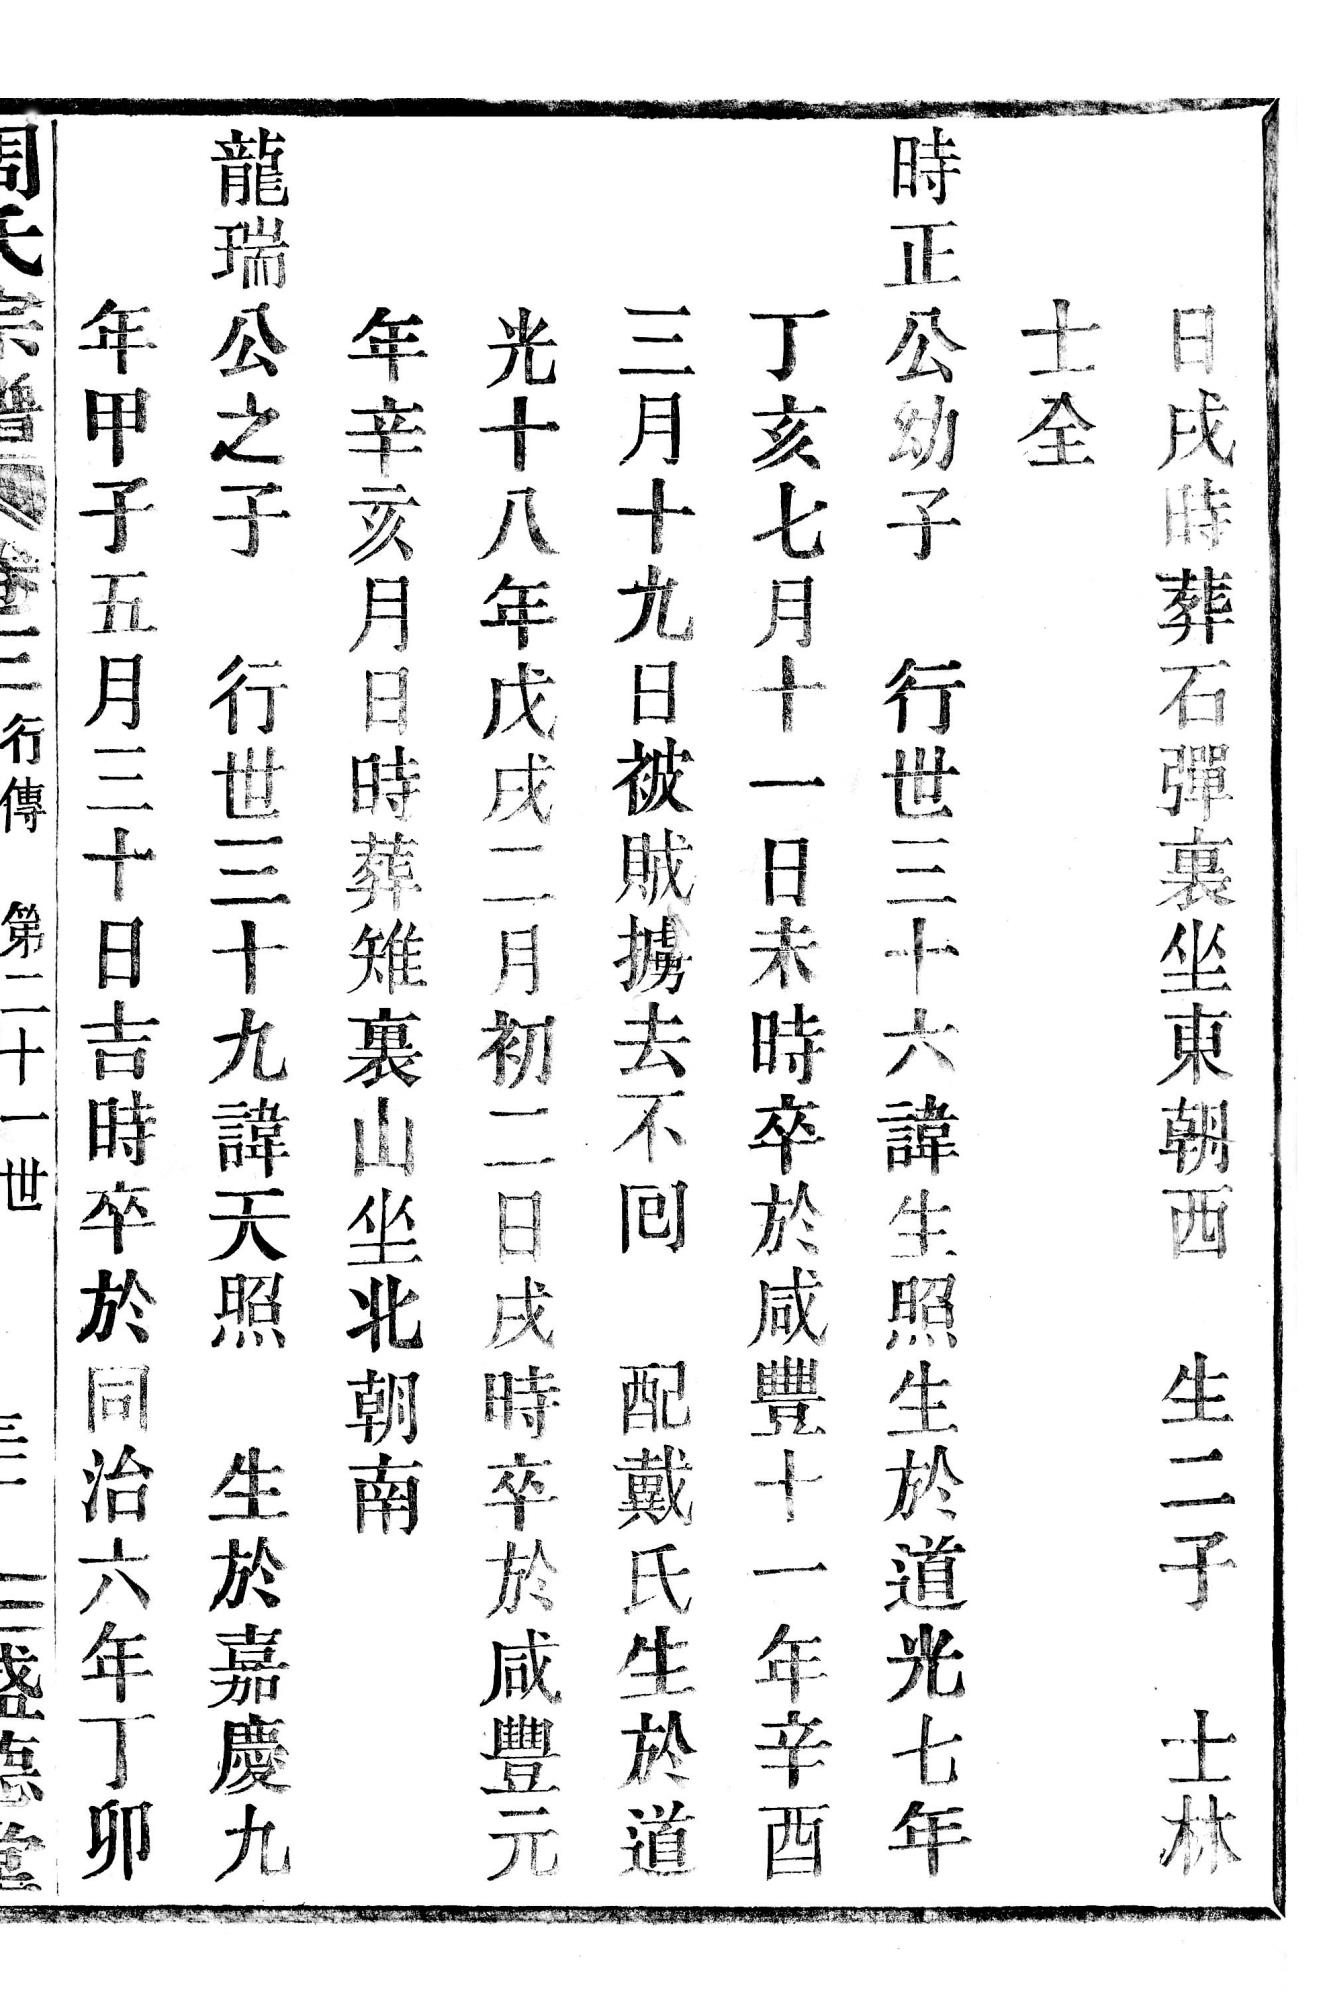 日戌時葬石彈裏坐東朝西　生二子　士林
士全
時正公幼子　行世三十六諱生照生於道光七年
丁亥七月十一日未時卒於咸豐十一年辛酉
三月十九日被賊擄去不囘　配戴氏生於道
光十八年戊戌二月初二日戌時卒於咸豐元
年辛亥月日時葬雉裏山坐北朝南
龍瑞公之子　行世三十九諱天照　生於嘉慶九
年甲子五月三十日吉時卒於同治六年丁卯
周氏宗譜　卷三　行傳　第二十一世　盛德堂